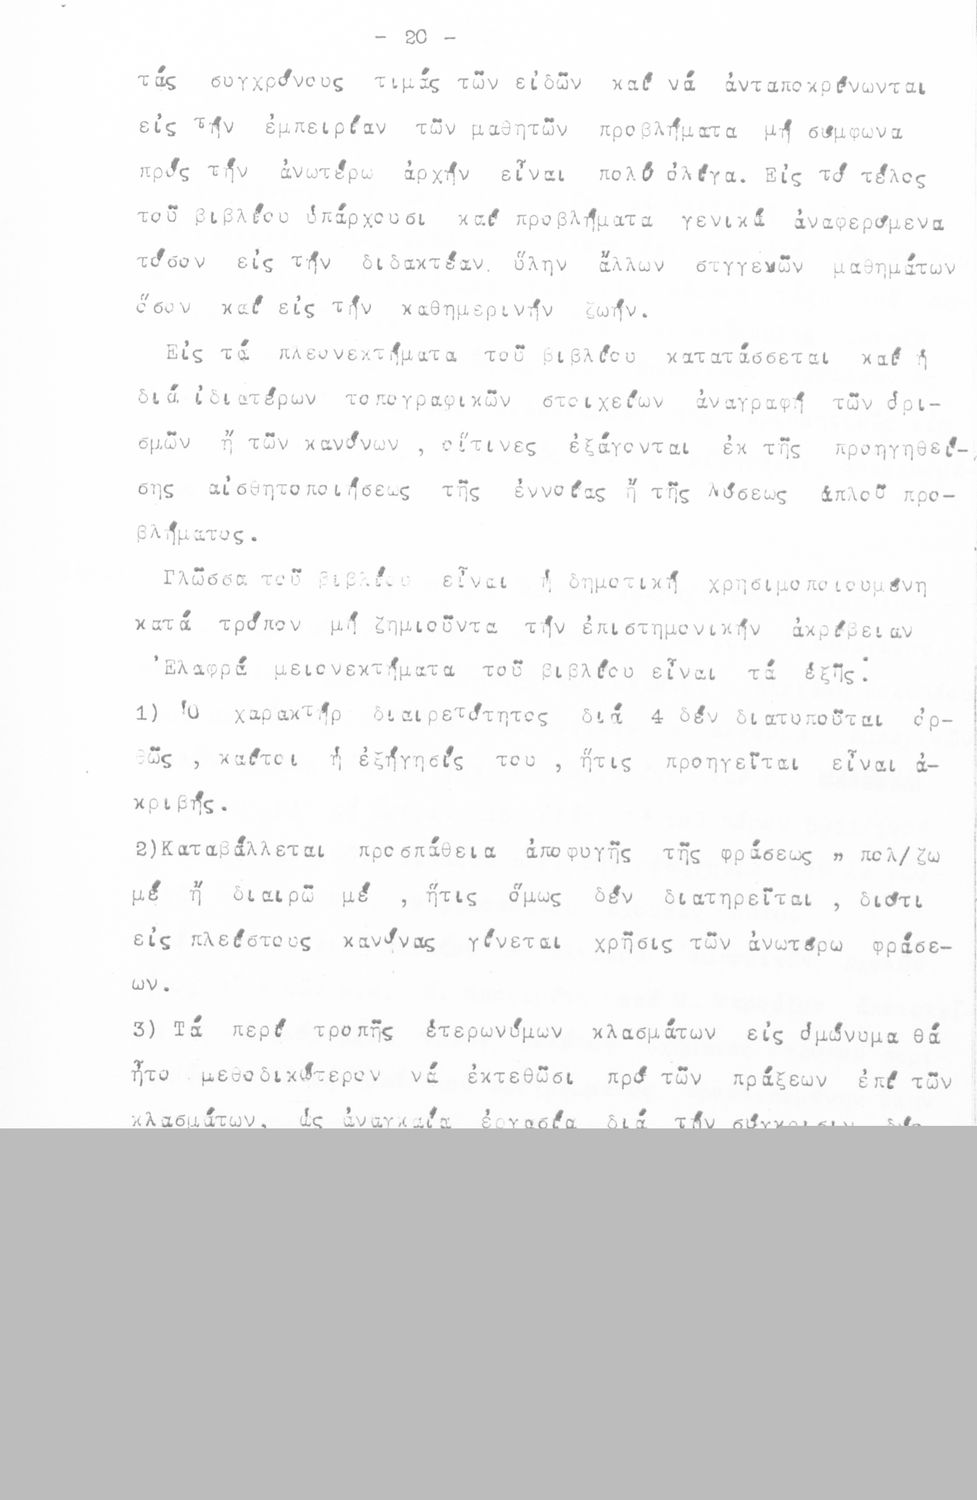 - 20 -
τάς συγχρόνους τιμάς τῶν εἰδῶν καί νά ἀνταποκρίνωνται
εἰς τήν ἐμπειρίαν τῶν μαθητῶν προβλήματα μή σύμφωνα
πρός τήν ἀνωτέρω ἀρχήν εἶναι πολύ ὀλίγα. Εἰς τό τέλος
τοῦ βιβλίου ὑπάρχουσι καί προβλήματα γενικά ἀναφερόμενα
τόσον εἰς τήν διδακτέαν. ὕλην ἄλλων στγγενῶν μαθημάτων
ὅσον καί εἰς τήν καθημερινήν ζωήν.
Εἰς τά πλεονεκτήματα τοῦ βιβλίου κατατάσσεται καί ἡ
διά ἰδιατέρων τοπογραφικῶν στοιχείων ἀναγραφή τῶν ὁρι-
σμῶν ἤ τῶν κανόνων , οἵτινες ἐξάγονται ἐκ τῆς προηγηθεί-
σης αἰσθητοποιήσεως τῆς ἐννοίας ἤ τῆς λύσεως ἁπλοῦ προ-
βλήματος.
Γλῶσσα τοῦ βιβλίου εἶναι ἡ δημοτική χρησιμοποιουμένη
κατά τρόπον μή ζημιοῦντα τήν ἐπιστημονικήν ἀκρίβειαν
Ἐλαφρά μειονεκτήματα τοῦ βιβλίου εἶναι τά ἑξῆς:
1) Ὁ χαρακτήρ διαιρετότητος διά 4 δέν διατυποῦται ὀρ-
θῶς , καίτοι ἡ ἐξήγησίς του , ἥτις προηγεῖται εἶναι ἀ-
κριβής.
2)Καταβάλλεται προσπάθεια ἀποφυγῆς τῆς φράσεως " πολ/ζω
μέ ἤ διαιρῶ μέ , ἥτις ὅμως δέν διατηρεῖται , διότι
εἰς πλείστους κανόνας γίνεται χρῆσις τῶν ἀνωτέρω φράσε-
ων.
3) Τά περί τροπῆς ἑτερωνύμων κλασμάτων εἰς ὁμώνυμα θά
ἦτο μεθοδικώτερον νά ἐκτεθῶσι πρό τῶν πράξεων ἐπί τῶν
κλασμάτων, ὡς ἀναγκαία ἐργασία διά τήν σύγκρισιν δύο